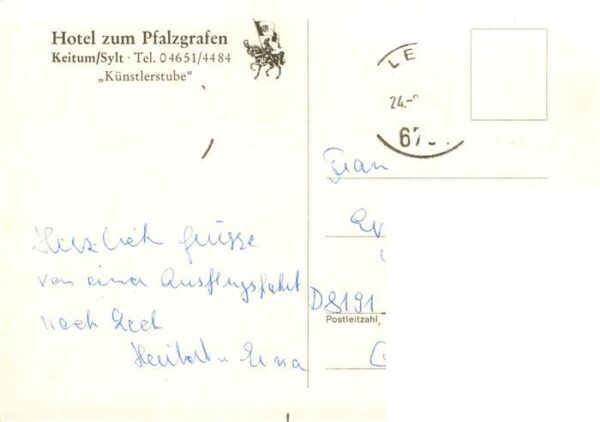 Hotel zum Pfalzgrafen
Keitum/Sylt · Tel. 04651/4484
„Künstlerstube“
LE
24.-
67
Frau
Herzlich grüsse
von einer Ausflugsfahrt
nach
Heribert u Erna
D8191
Postleitzahl